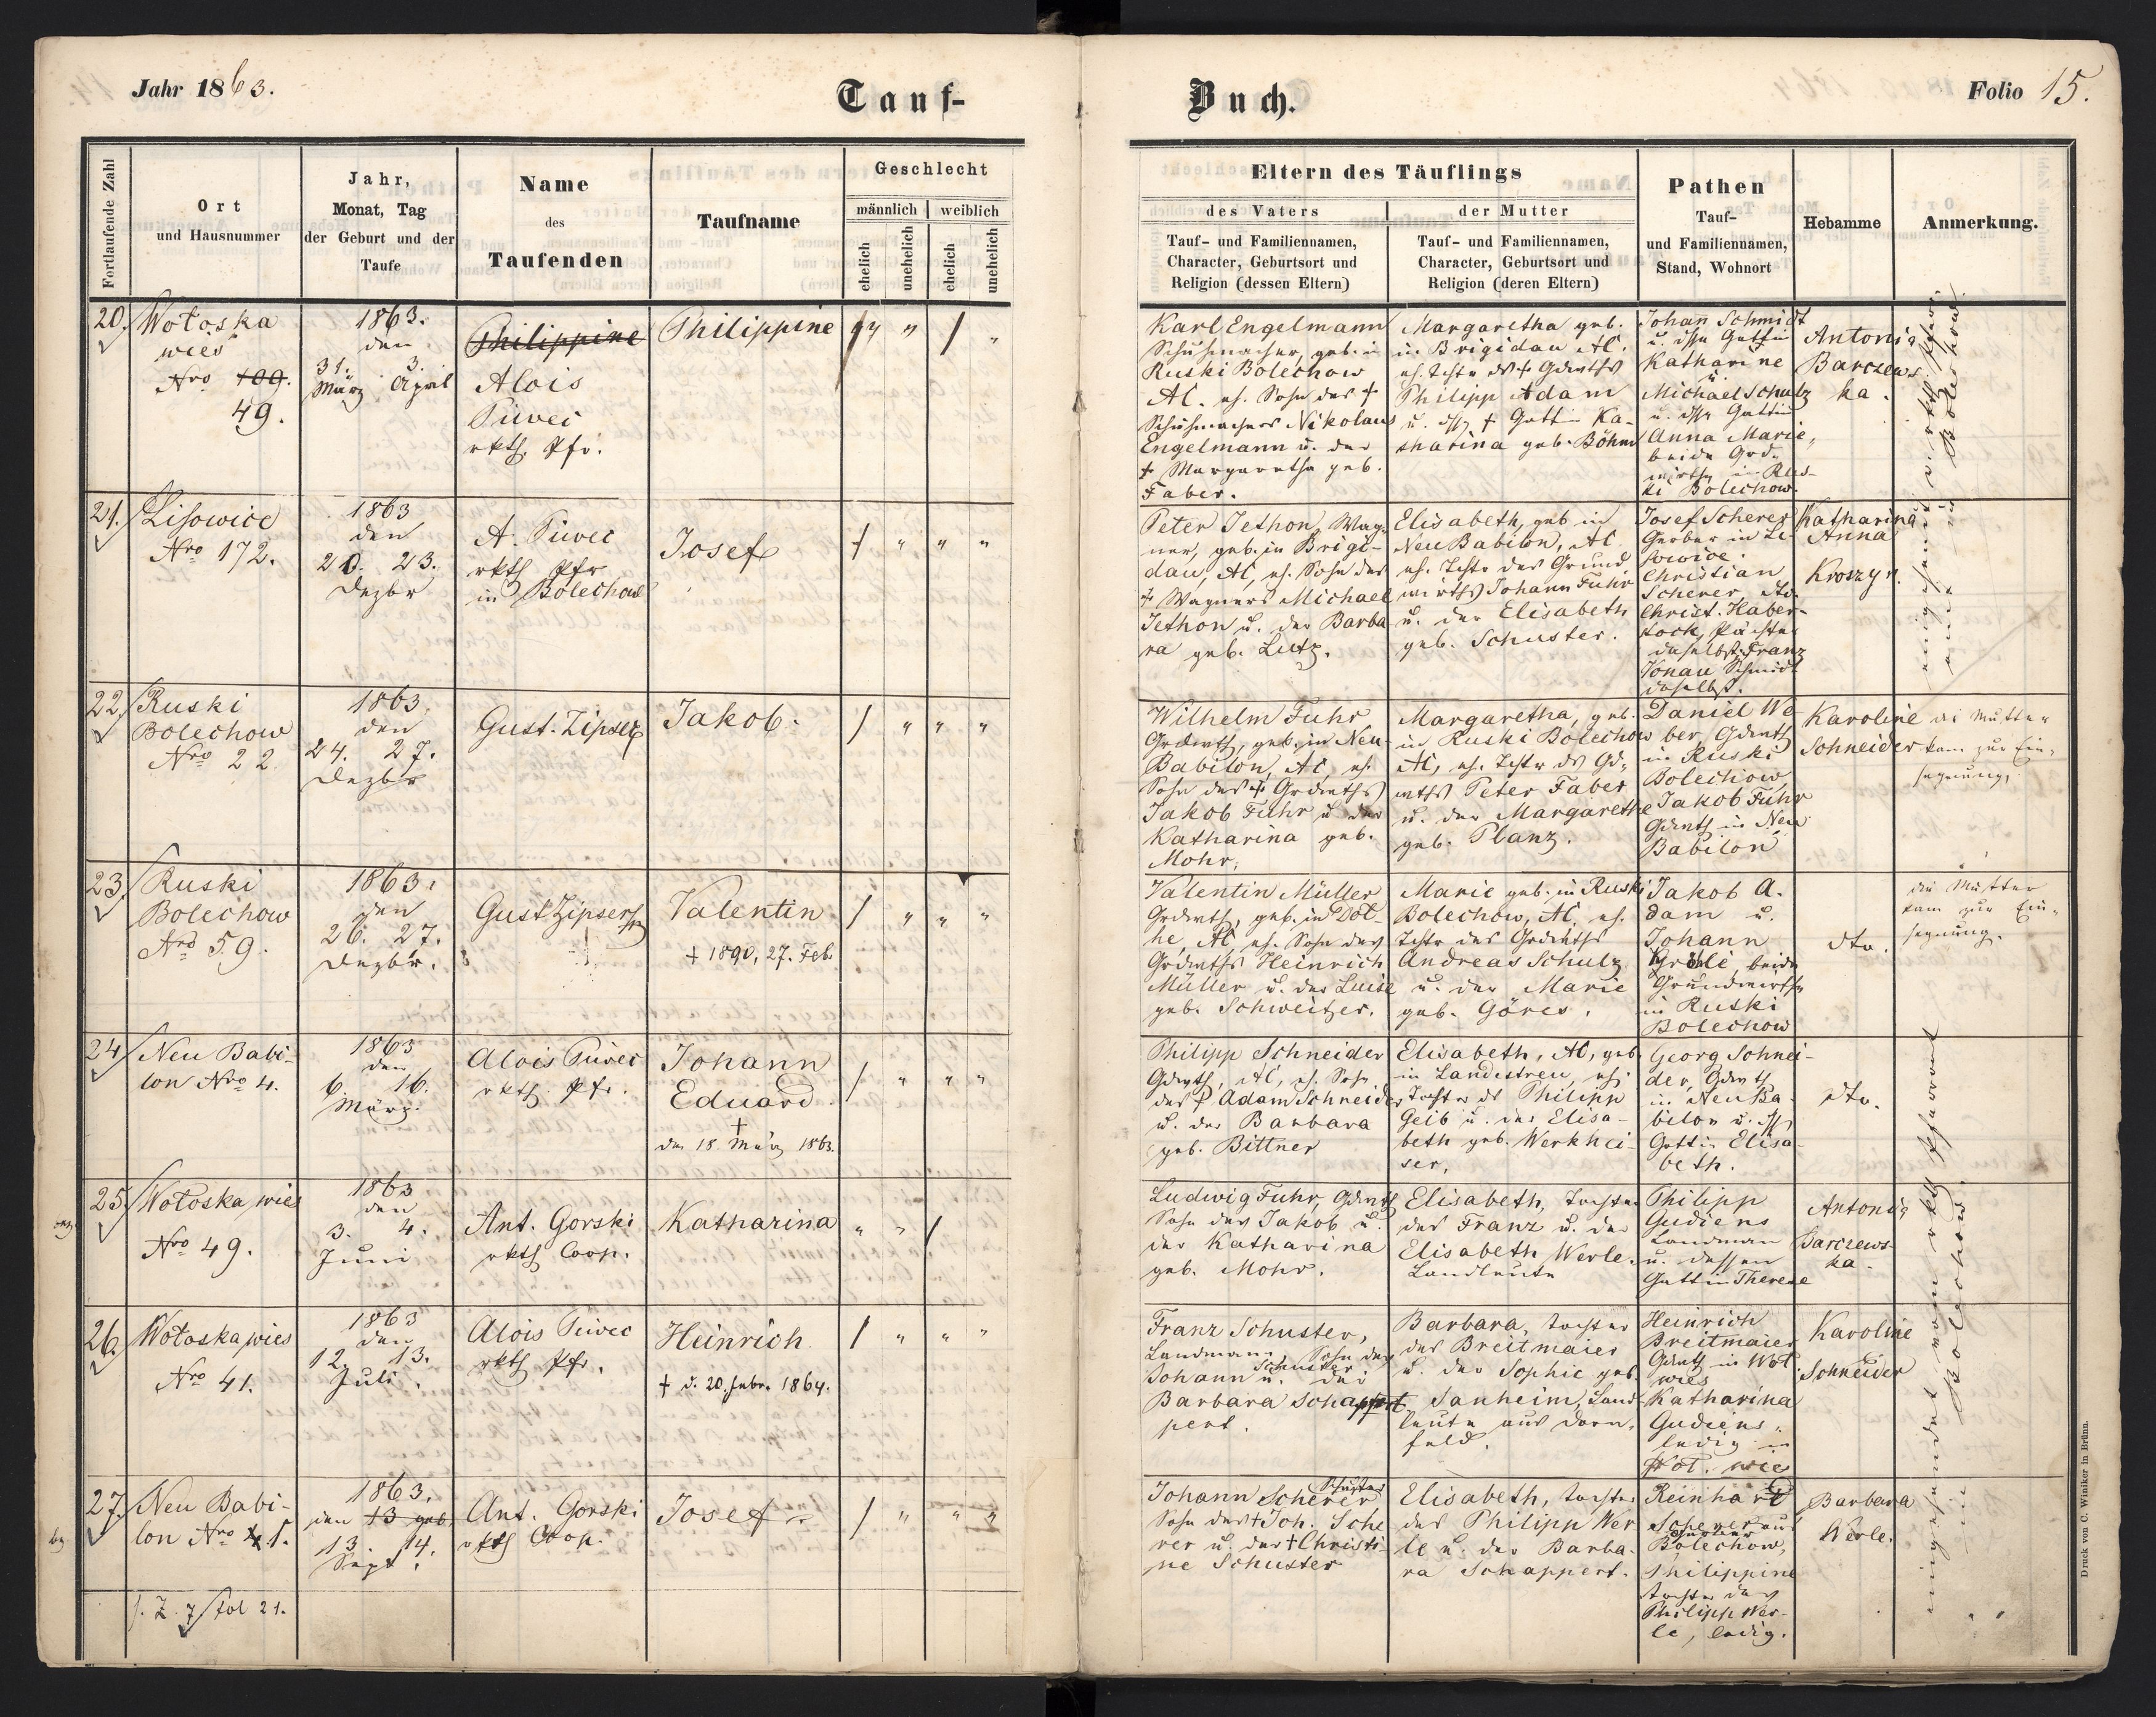 Jahr 1863.
Tauf-
Buch.
Folio 15.
Fortlaufende Zahl
Ort
und Hausnummer
Jahr,
Monat, Tag
der Geburt und der
Taufe
Name
des
Taufenden
Taufname
Geschlecht
männlich
weiblich
ehelich
unehelich
ehelich
unehelich
Eltern des Täuflings
des Vaters
Tauf- und Familiennamen,
Character, Geburtsort und
Religion (dessen Eltern)
der Mutter
Tauf- und Familiennamen,
Character, Geburtsort und
Religion (deren Eltern)
Pathen
Tauf-
und Familiennamen,
Stand, Wohnort
Hebamme
Anmerkung.
20.
Wołoska
wies
Nro 109.
49.
1863.
den
31. 3.
März April
Philippine
Alois
Piwec
rkth. Pfr.
Philippine
Karl Engelmann
Schuhmacher, geb. in
Ruski Bolechow
AC. eh. Sohn des +
Schuhmachers Nikolaus
Engelmann u. der
+ Margaretha geb.
Faber.
Margaretha geb.
in Brigidau AC.
eh. Tchtr ds + Gdwths
Philipp Adam
u. dss + Gattin Ka-
tharina geb. Böhm
Johann Schmidt
u. dssn Gattin
Katharine
u.
Michael Schulz
u. dssn Gattin
Anna Marie,
beide Grd-
wirthe in Rus-
ki Bolechow.
Antonia
Barczews
ka.
21.
Lisowice
Nro 172.
1863
den
20. 23.
Dezbr
A. Piwec
rkth Pfr
in Bolechow
Josef
Peter Jethon, Wag-
ner, geb. in Brigi-
dau, AC, eh. Sohn des
+ Wagners Michael
Jethon u. der Barba
ra geb. Lutz.
Elisabeth, geb in
Neu Babilon, AC
eh. Tchtr des Grund
wirths Johann Fuhr
u. der Elisabeth
geb. Schuster.
Josef Scherer
Gerber in Li-
sowice.
Christian
Scherer,
Christ. Haber-
stock, Pächter
daselbst. Franz
Schmidt
daselbst.
Katharina
Anna
22.
Ruski
Bolechow
Nro 22
1863.
den
24. 27.
Dezbr
Gust. Zipser
Jakob.
Wilhelm Fuhr
Grdwth, geb. in Neu-
Babilon, AC, eh.
Sohn des + Grdwths
Jakob Fuhr u der
Katharina geb.
Mohr.
Margaretha, geb.
in Ruski Bolechow
AC, eh. Tchtr ds Gd-
wths Peter Faber
u. der Margarethe
geb. Planz.
Daniel We-
ber, Gdwth
in Ruski
Bolechow
Jakob Fuhr
Gdwth in Neu
Babilon
Karoline
Schneider
die Mutter
kam zur Ein-
segnung.
23.
Ruski
Bolechow
Nro 59.
1863.
den
26. 27.
Dezbr.
Gust Zipser
Valentin
+ 1890, 27. Feb.
Valentin Müller
Grdwth, geb. in Dol-
he, AC, eh. Sohn des
Grdwths Heinrich
Müller u. der Luise
geb. Schweitzer.
Marie geb. in Ruski
Bolechow, AC, eh.
Tchtr des Grdwths
Andreas Schulz
u. der Marie
geb. Göres.
Jakob A.
dam u.
Johann
beide
Grundwirthe
in Ruski
Bolechow
dto.
die Mutter
kam zur Ein-
segnung.
24.
Neu Babi-
lon Nro 4.
1863
den
6. 16.
März.
Alois Piwec
rkth. Pfr.
Johann
Eduard.
+
den 18. März 1863.
Philipp Schneider
Gdwth, AC, eh. Sohn
des + Adam Schneider
u. der Barbara
geb. Bittner
Elisabeth, AC, geb.
in Landestreu, eh.
Tochter ds Philipp
Geib u. der Elisa-
beth geb. Werkhei-
ser.
Georg Schnei-
der, Gdwth
in Neu Ba-
bilon u. dss
Gattin Elisa-
beth.
dto.
25.
Wołoska wies
Nro 49.
1863
den
3. 4.
Juni
Ant. Gorski
rkth Coop.
Katharina
Ludwig Fuhr, Gdwth
Sohn des Jakob u.
der Katharina
geb. Mohr.
Elisabeth, Tochter
des Franz u. der
Elisabeth Werle.
Landleute
Philipp
Gudiens
Landmann
u. dessen
Gattin Therese
Antonia
Barczews-
ka.
26.
Wołoska wies
Nro 41.
1863
den
12. 13.
Juli.
Alois Piwec
rkth Pfr.
Heinrich
+ d. 20. Febr. 1864.
Franz Schuster,
Landmann, Sohn des
Johann Schuster u. der
Barbara Schap
pert.
Barbara, Tochter
des Breitmaier
u. der Sophie geb.
Sanheim, Land-
leute aus Dorn-
feld.
Heinrich
Breitmaier
Gdwth in Woł
wies
Katharina
Gudiens,
ledig in
Woł. wies
Karoline
Schneider
27.
Neu Babi-
lon Nro 1.
1863.
den 13 geb.
13. 14.
Sept.
Ant. Gorski
rkth Coop.
Josef
Johann Scherer Schuster
Sohn des + Joh. Sche
rer u. der + Christi-
ne Schuster
Elisabeth, Tochter
des Philipp Wer
le u. der Barba-
ra Schappert.
Reinhard
Scherer aus
Bolechow,
Philippine
Tochter des
Philipp Wer-
le, ledig.
Barbara
Werle.
eingesendet vom rkth Pfarramt
in Bolechow.
Druck von C. Winiker in Brünn.